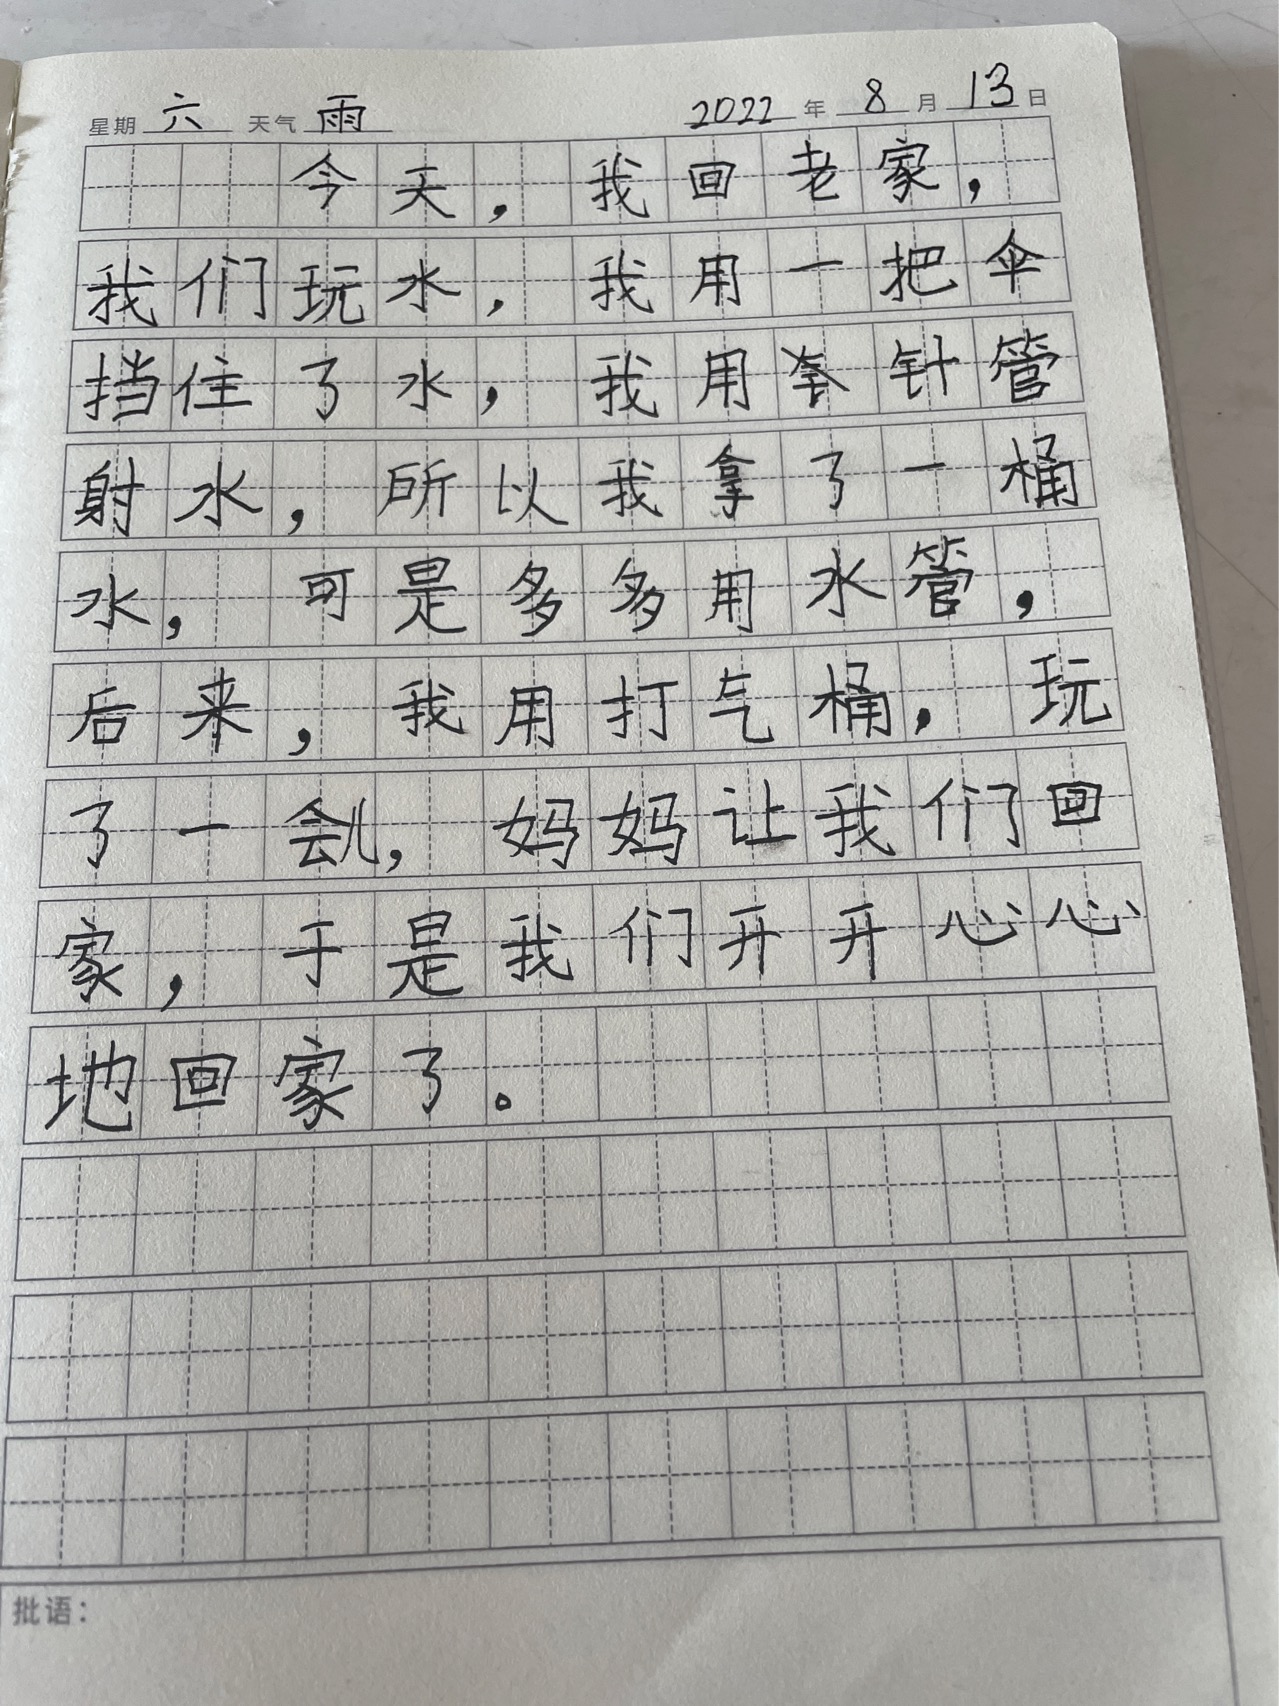 星期 六 天气 雨 2022 年 8 月 13 日
今天，我回老家，
我们玩水，我用一把伞
挡住了水，我用针管
射水，所以我拿了一桶
水，可是多多用水管，
后来，我用打气桶，玩
了一会儿，妈妈让我们回
家，于是我们开开心心
地回家了。
批语：